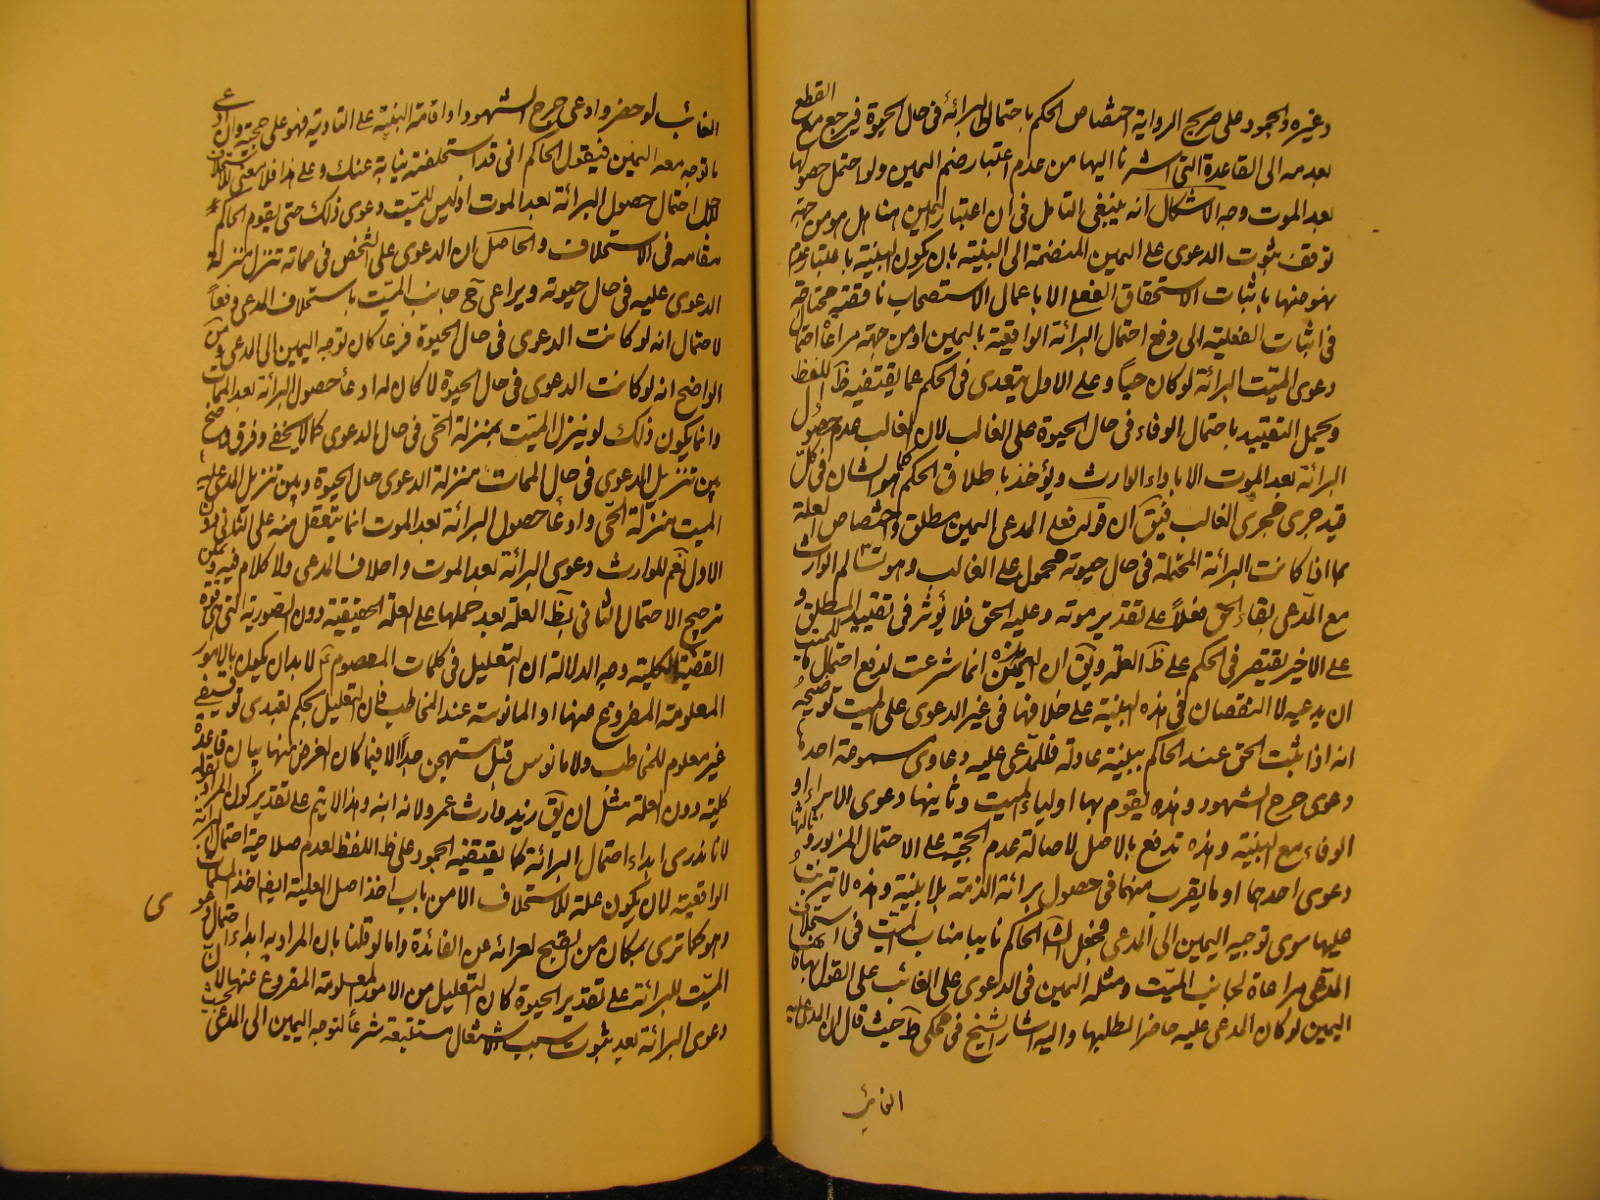 وغيره والجمود على صريح الرواية اختصاص الحكم باحتمال البرائة في حال الحيوة فيرجع مع القطع
بعدمه الى القاعدة التي اشرنا اليها من عدم اعتبار ضم اليمين ولو احتمل حصولها
بعد الموت وجه الاشكال انه ينبغي التامل في ان اعتبار اليمين هنا هل هو من جهة
توقف ثبوت الدعوى على اليمين المنضمة الى البينة بان يكون البينة باعتبار عدم
نهوضها باثبات الاستحقاق الفعلي الا باعمال الاستصحاب ناقصة محتاجة
في اثبات الفعلية الى دفع احتمال البرائة الواقعية باليمين او من جهة مراعاة احتمال
دعوى الميّت البرائة لو كان حيا وعلى الاول يتعدى في الحكم عما يقتضيه ظ اللفظ
ويحمل التقييد باحتمال الوفاء في حال الحيوة على الغالب لان الغالب عدم حصول
البرائة بعد الموت الا باداء الوارث ويؤخذ باطلاق الحكم كما هو الشان في كلّ
قيد جرى مجرى الغالب فيق ان قوله فعلى المدعى اليمين مطلق واختصاص العلة
بما اذا كانت البرائة المحتملة في حال حيوته محمول على الغالب وهو تسالم الوارث
مع المدّعى بقاء الحق فعلاً على تقدير موته وعليه الحق فلا يؤثر في تقييد المطلق و
على الاخير يقتصر في الحكم على ظ العلة ويق ان اليمين هذه انما شرعت لدفع احتمال للميت
ان يدعيه لا لنقصان في هذه البينة على خلافها في غير الدعوى على الميت توضيحه
انه اذا ثبت الحق عند الحاكم ببينة عادلة فللمدّعى عليه دعاوى مسموعة احدها
دعوى جرح الشهود وهذه يقوم بها اولياء الميت وثانيها دعوى الابراء او
الوفاء مع البينة وهذه تدفع بالاصل لاصالة عدم الحجية على الاحتمال المزبور وثالثها
دعوى احدهما او ما يقرب منهما في حصول برائة الذمة بلا بينة وهذه لا تترتب
عليها سوى توجيه اليمين الى المدعى فجعل الش الحاكم نايبا مناب الميّت في استحلاف
المدّعى مراعاة لجانب الميّت ومثله اليمين في الدعوى على الغائب على القول بها
اليمين لو كان المدعى عليه حاضرا لطلبها واليه اشار الشيخ في محكي ط حيث قال ان المدعى عليه
الغائب
الغائب لو حضر وادعى جرح الشهود او اقامة البينة على التادية فهو على حجته وان ادعى
ما توجه معه اليمين فيقول الحاكم انى قد استحلفته نيابة عنك وعلى هذا فلا معنى للاستحلاف
لاجل احتمال حصول البرائة بعد الموت اذ ليس للميّت دعوى ذلك حتى يقوم الحاكم
مقامه في الاستحلاف والحاصل ان الدعوى على الشخص في مماته تنزل منزلة
الدعوى عليه في حال حيوته ويراعى ح جانب الميّت باستحلاف المدعى دفعاً
لاحتمال انه لو كانت الدعوى في حال الحيوة فربما كان توجه اليمين الى المدعى ومن
الواضح انه لو كانت الدعوى في حال الحيوة لا كان له ادعاء حصول البرائة بعد الممات
وانما يكون ذلك لو نزل الميّت بمنزلة الحّى في حال الدعوى كما لا يخفى وفرق واضح
بين تنزيل الدعوى في حال الممات منزلة الدعوى حال الحيوة وبين تنزيل المدعى عليه
الميت منزلة الحّى وادعاء حصول البرائة بعد الموت انما يتعقل منه على الثانى دون
الاول نعم للوارث دعوى البرائة بعد الموت واحلاف المدعى ولا كلام فيه ويمكن
ترجيح الاحتمال الثانى بظ العلة بعد حملها على العلة الحقيقية دون الصّورية التي هي قوة
القضية الكلية وجه الدلالة ان التعليل في كلمات المعصوم ع لا بد ان يكون بالامور
المعلومة المفروغ عنها او المانوسة عند المخاطب فان التعليل بحكم تعبدى توقيفى
غير معلوم للمخاطب ولا مانوس قبل مستهجن جداً الا فيما كان الغرض منها بيان قاعدة
كلية دون العلة مثل ان يق زيد وارث عمرو لانه ابنه وهذا لا يتم على تقدير كون المراد
لانا ندرى ابداء احتمال البرائة كما يقتضيه الجمود على ظ اللفظ لعدم صلاحية احتمال البرائة
الواقعية لان يكون علة للاستحلاف الا من باب اخذ اصل العلية ايضا من العلة
وهو كما ترى بمكان من القبح لعرائه عن الفائدة واما لو قلنا بان المراد به ابداء احتمال
الميّت للبرائة على تقدير الحيوة كان التعليل من الامور المعلومة المفروغ عنها لان
دعوى البرائة بعد ثبوت سبب الاشتغال مستتبعة شرعاً لتوجه اليمين الى المدعى